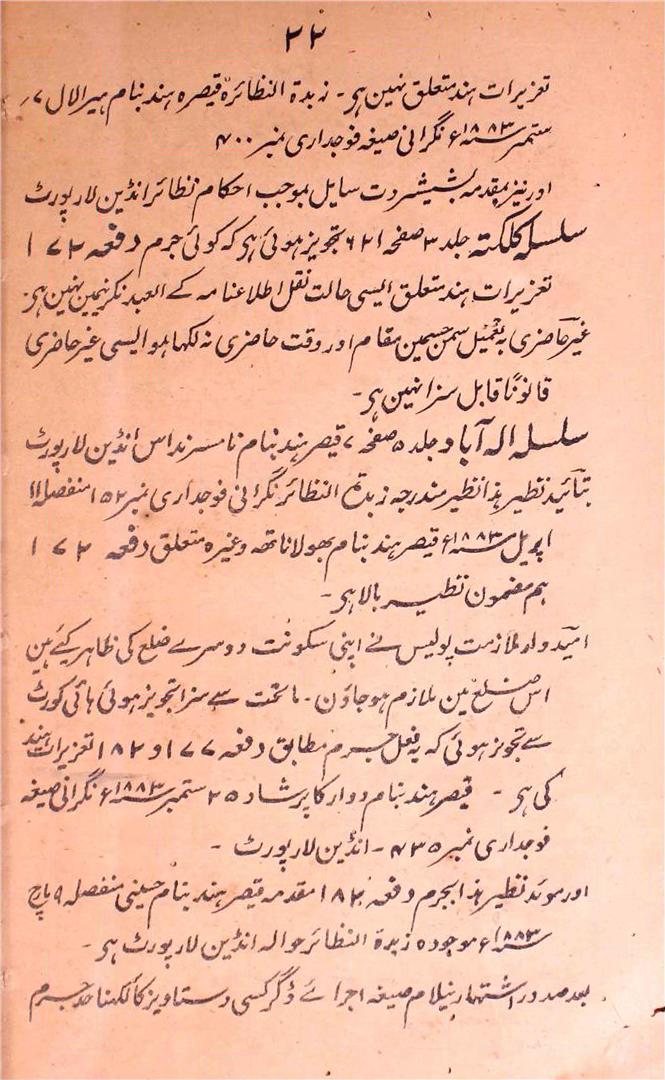 ۲۲
تعزیرات ہند متعلق نہین ہی - زبدۃ النظائرہ قیصرہ ہند بنام ہیرالال ۷
ستمبر سنہ ۱۸۸۳ء نگرانی صیغہ فوجداری نمبر ۴۰۰
اور نیز بمقدمہ بشیشر دت سایل بموجب احکام نظائر انڈین لارپورٹ
سلسلہ کلکتہ جلد ۳ صفحہ ۶۲۱ تجویز ہوئی ہی کہ کوئی جرم دفعہ ۱۷۲
تعزیرات ہند متعلق ایسی حالت نقل اطلاعنامہ کے العبد نکرنیمین نہین ہی
غیر حاضری بہ تعمیل سمن جسمین مقام اور وقت حاضری نہ لکہا ہو ایسی غیر حاضری
قانوناً قابل سزا نہین ہی -
سلسلہ الہ آباد جلد ۵ صفحہ ۷ قیصر ہند بنام انڈین لارپورٹ
بتائید نظیر ہذا نظیر مندرجہ زبدۃ النظائر نگرانی فوجداری نمبر ۱۵۲ منفصلہ ۱۱
اپریل سنہ ۱۸۸۳ء قیصر ہند بنام بھولاناتھہ وغیرہ متعلق دفعہ ۱۷۲
ہم مضمون نظیر بالا ہی -
امیدوار ملازمت پولیس نے اپنی سکونت دوسرے ضلع کی ظاہر کیئے مین
اس ضلع مین ملازم ہو جاؤن - ماتحت سے سزا تجویز ہوئی ہائی کورٹ
سے تجویز ہوئی کہ یہ فعل جرم مطابق دفعہ ۱۷۷ و ۱۸۲ تعزیرات ہند
کی ہی - قیصر ہند بنام دوارکا پرشاد ۲۵ ستمبر سنہ ۱۸۸۳ء نگرانی صیغہ
فوجداری نمبر ۴۳۵ - انڈین لارپورٹ -
اور موئد نظیر ہذا بجرم دفعہ ۱۸۲ مقدمہ قیصر ہند بنام حسینی منفصلہ ۹ مارچ
سنہ ۱۸۸۳ء موجودہ زبدۃ النظائر حوالہ انڈین لارپورٹ ہی -
بعد صدور اشتہار نیلام صیغہ اجرائے ڈگر کسی دستاویز کا لکہنا حد جرم